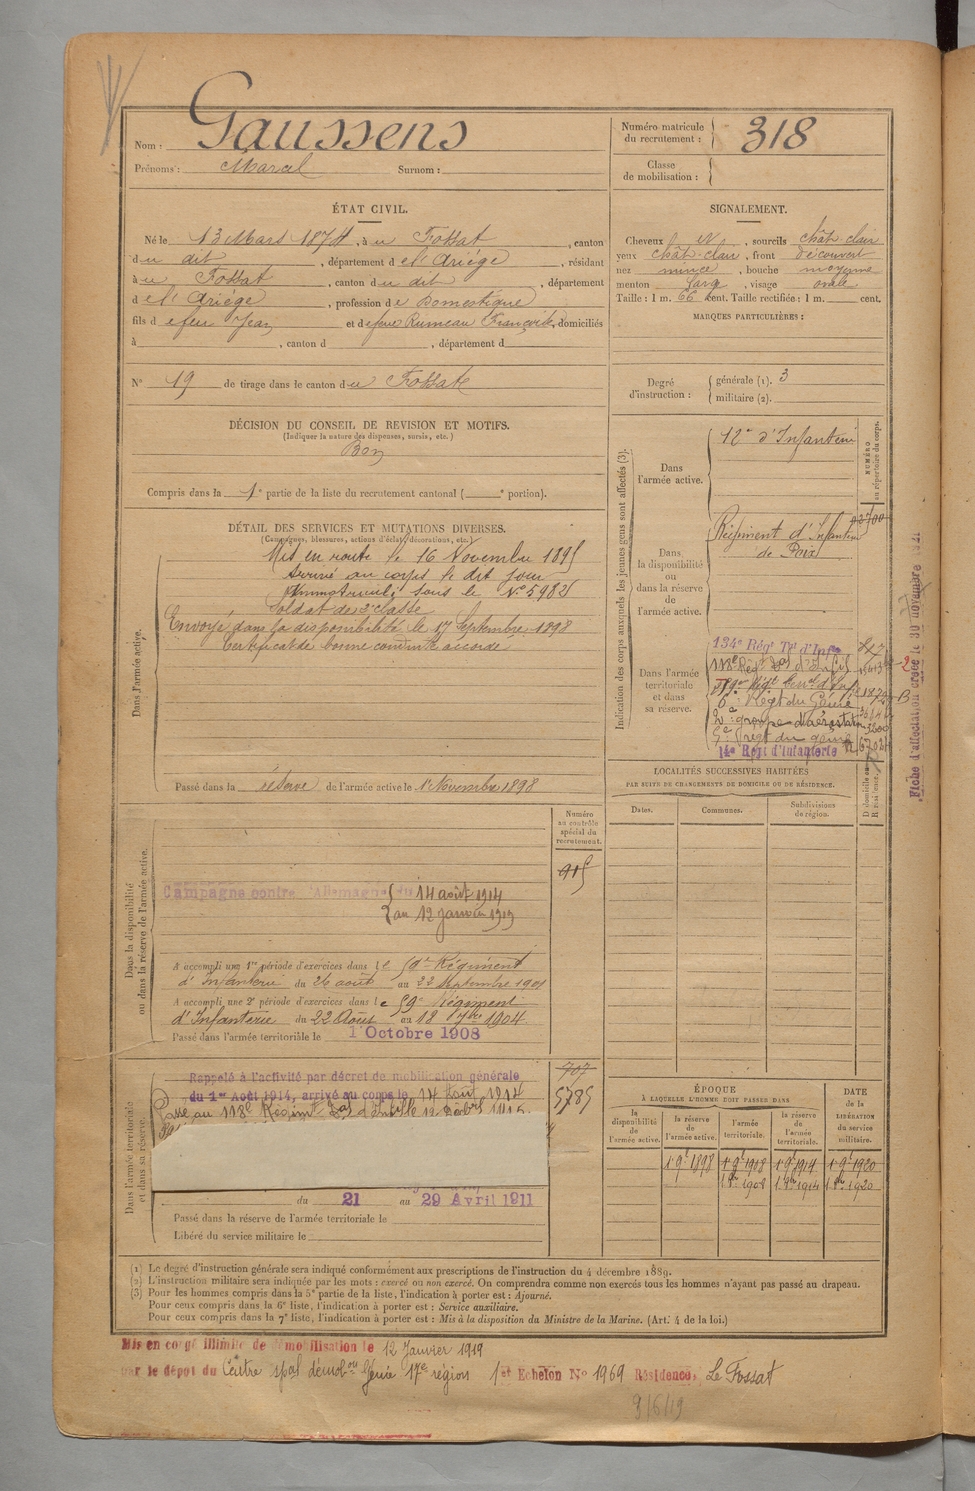 Nom : Gaussens
Prénoms : Marcel Surnom :
Numéro matricule du recrutement : 318
Classe de mobilisation :
ÉTAT CIVIL.
Né le 13 Mars 1874, à u Fossat, canton
du dit, département de l'Ariège, résidant
à u Fossat, canton du dit, département
de l'Ariège, profession de Domestique
fils de feu Jean et de feue Rumeau Françoise, domiciliés
à , canton d , département d
N° 19 de tirage dans le canton du Fossat
SIGNALEMENT.
Cheveux , sourcils chât-clair
yeux chât-clair, front découvert
nez mince, bouche moyenne
menton large, visage ovale
Taille : 1 m. 66 cent. Taille rectifiée : 1 m. cent.
MARQUES PARTICULIÈRES :
Degré d'instruction : générale (1). 3
militaire (2).
DÉCISION DU CONSEIL DE REVISION ET MOTIFS.
(Indiquer la nature des dispenses, sursis, etc.)
Bon
Compris dans la 1e partie de la liste du recrutement cantonal ( e portion).
DÉTAIL DES SERVICES ET MUTATIONS DIVERSES.
(Campagnes, blessures, actions d'éclat, décorations, etc.)
Dans l'armée active.
Mis en route le 16 Novembre 1895
Arrivé au corps le dit jour
Immatriculé sous le N° 5982
Soldat de 2e classe
Envoyé dans la disponibilité le 17 Septembre 1898
Certificat de bonne conduite accordé
Passé dans la réserve de l'armée active le 1er Novembre 1898
Indication des corps auxquels les jeunes gens sont affectés (3).
NUMÉRO au répertoire du corps.
Dans l'armée active.
12e d'Infanterie
Dans la disponibilité ou dans la réserve de l'armée active.
Régiment d'Infanterie
de Foix
Dans l'armée territoriale et dans sa réserve.
134e Régt Tal d'Infie
118e Régt Tal d'Infie
6e Régt du Génie
2e groupe d'aérostation
régt du génie
14e Régt d'Infanterie
Fiche d'affectation créée le 30 novembre 1921
LOCALITÉS SUCCESSIVES HABITÉES
PAR SUITE DE CHANGEMENTS DE DOMICILE OU DE RÉSIDENCE.
Dates.
Communes.
Subdivisions de région.
D. domicile ou R. résidence.
Dans la disponibilité ou dans la réserve de l'armée active.
Numéro au contrôle spécial du recrutement.
915
Campagne contre l'Allemagne du 14 août 1914
au 12 janvier 1919
A accompli une 1re période d'exercices dans le 59e Régiment
d'Infanterie du 26 août au 22 Septembre 1901
A accompli une 2e période d'exercices dans le 59e Régiment
d'Infanterie du 22 Août au 18 7bre 1904
Passé dans l'armée territoriale le 1 Octobre 1908
Dans l'armée territoriale et dans sa réserve.
707
5785
Rappelé à l'activité par décret de mobilisation générale
du 1er Août 1914, arrivé au corps le 14 Août 1914
Passé au 118e Régiment Tal d'Infie le
du 21 au 29 Avril 1911
Passé dans la réserve de l'armée territoriale le
Libéré du service militaire le
ÉPOQUE
À LAQUELLE L'HOMME DOIT PASSER DANS
la disponibilité de l'armée active.
la réserve de l'armée active.
l'armée territoriale.
la réserve de l'armée territoriale.
DATE de la LIBÉRATION du service militaire.
1 9e 1898 1 9e 1908 1 9e 1914 1 9e 1920
(1) Le degré d'instruction générale sera indiqué conformément aux prescriptions de l'instruction du 4 décembre 1889.
(2) L'instruction militaire sera indiquée par les mots : exercé ou non exercé. On comprendra comme non exercés tous les hommes n'ayant pas passé au drapeau.
(3) Pour les hommes compris dans la 5e partie de la liste, l'indication à porter est : Ajourné.
Pour ceux compris dans la 6e liste, l'indication à porter est : Service auxiliaire.
Pour ceux compris dans la 7e liste, l'indication à porter est : Mis à la disposition du Ministre de la Marine. (Art. 4 de la loi.)
Mis en congé illimité de démobilisation le 12 Janvier 1919
par le dépôt du Centre spal démobon Génie 17e région 1er Echelon N° 1969 Résidence, Le Fossat
9/6/19